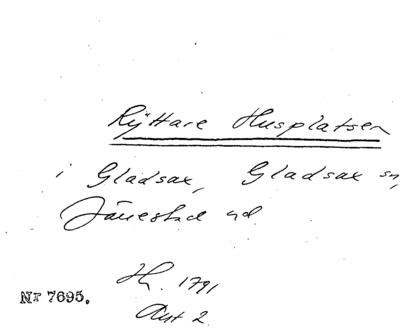 Ryttare Husplatsen
i Gladsax, Gladsax sn,
Järrestad hd.
Hh. 1791
Akt 2.
Nr 7695.